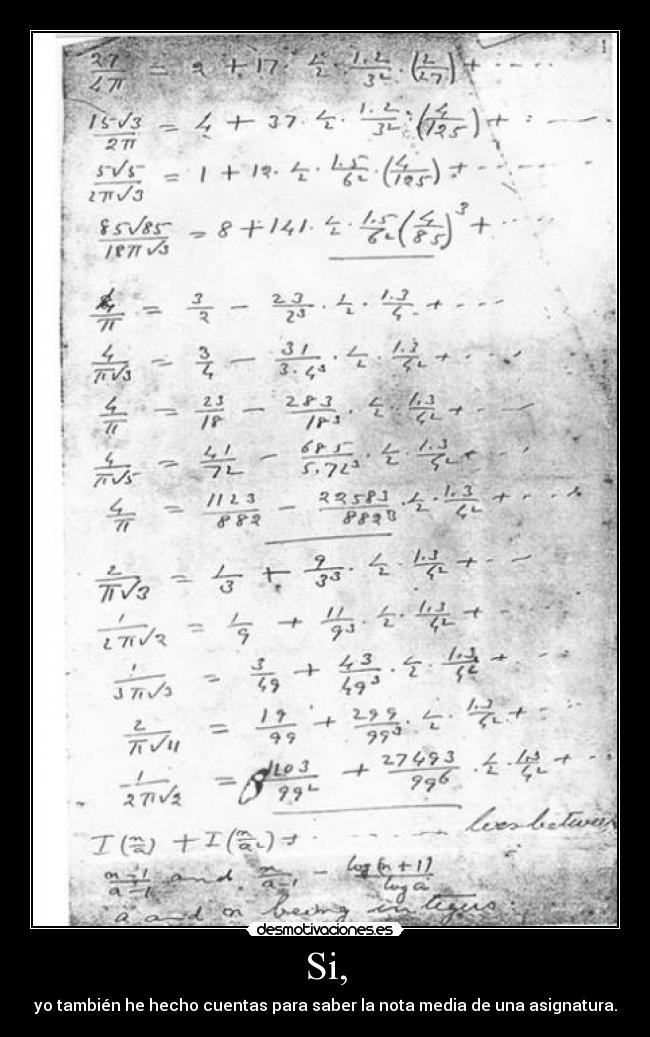 27/4π = 2 + 17 · 1/2 · 1.2/3² · (2/27) + ·····
15√3/2π = 4 + 37 · 1/2 · 1.2/3² · (4/125) + ·····
5√5/2π√3 = 1 + 12 · 1/2 · 1.5/6² · (4/125) + ·····
85√85/18π√3 = 8 + 141 · 1/2 · 1.5/6² (4/85)³ + ····
4/π = 3/2 - 23/2³ · 1/2 · 1.3/4 + ····
4/π√3 = 3/4 - 31/3.4³ · 1/2 · 1.3/4² + ····
4/π = 23/18 - 283/18³ · 1/2 · 1.3/4² + ····
4/π√5 = 41/72 - 685/5.72³ · 1/2 · 1.3/4² + ····
4/π = 1123/882 - 22583/882³ · 1/2 · 1.3/4² + ····
2/π√3 = 1/3 + 9/3³ · 1/2 · 1.3/4² + ····
1/2π√2 = 1/9 + 11/9³ · 1/2 · 1.3/4² + ····
1/3π√3 = 3/49 + 43/49³ · 1/2 · 1.3/4² + ····
2/π√11 = 19/99 + 299/99³ · 1/2 · 1.3/4² + ····
1/2π√2 = 1103/99² + 27493/99⁶ · 1/2 · 1.3/4² + ····
I(n/a) + I(n/a²) + ········ lies between
n-1/a-1 and n/a-1 - log(n+1)/log a
a and n being integers.
desmotivaciones.es
Si,
yo también he hecho cuentas para saber la nota media de una asignatura.